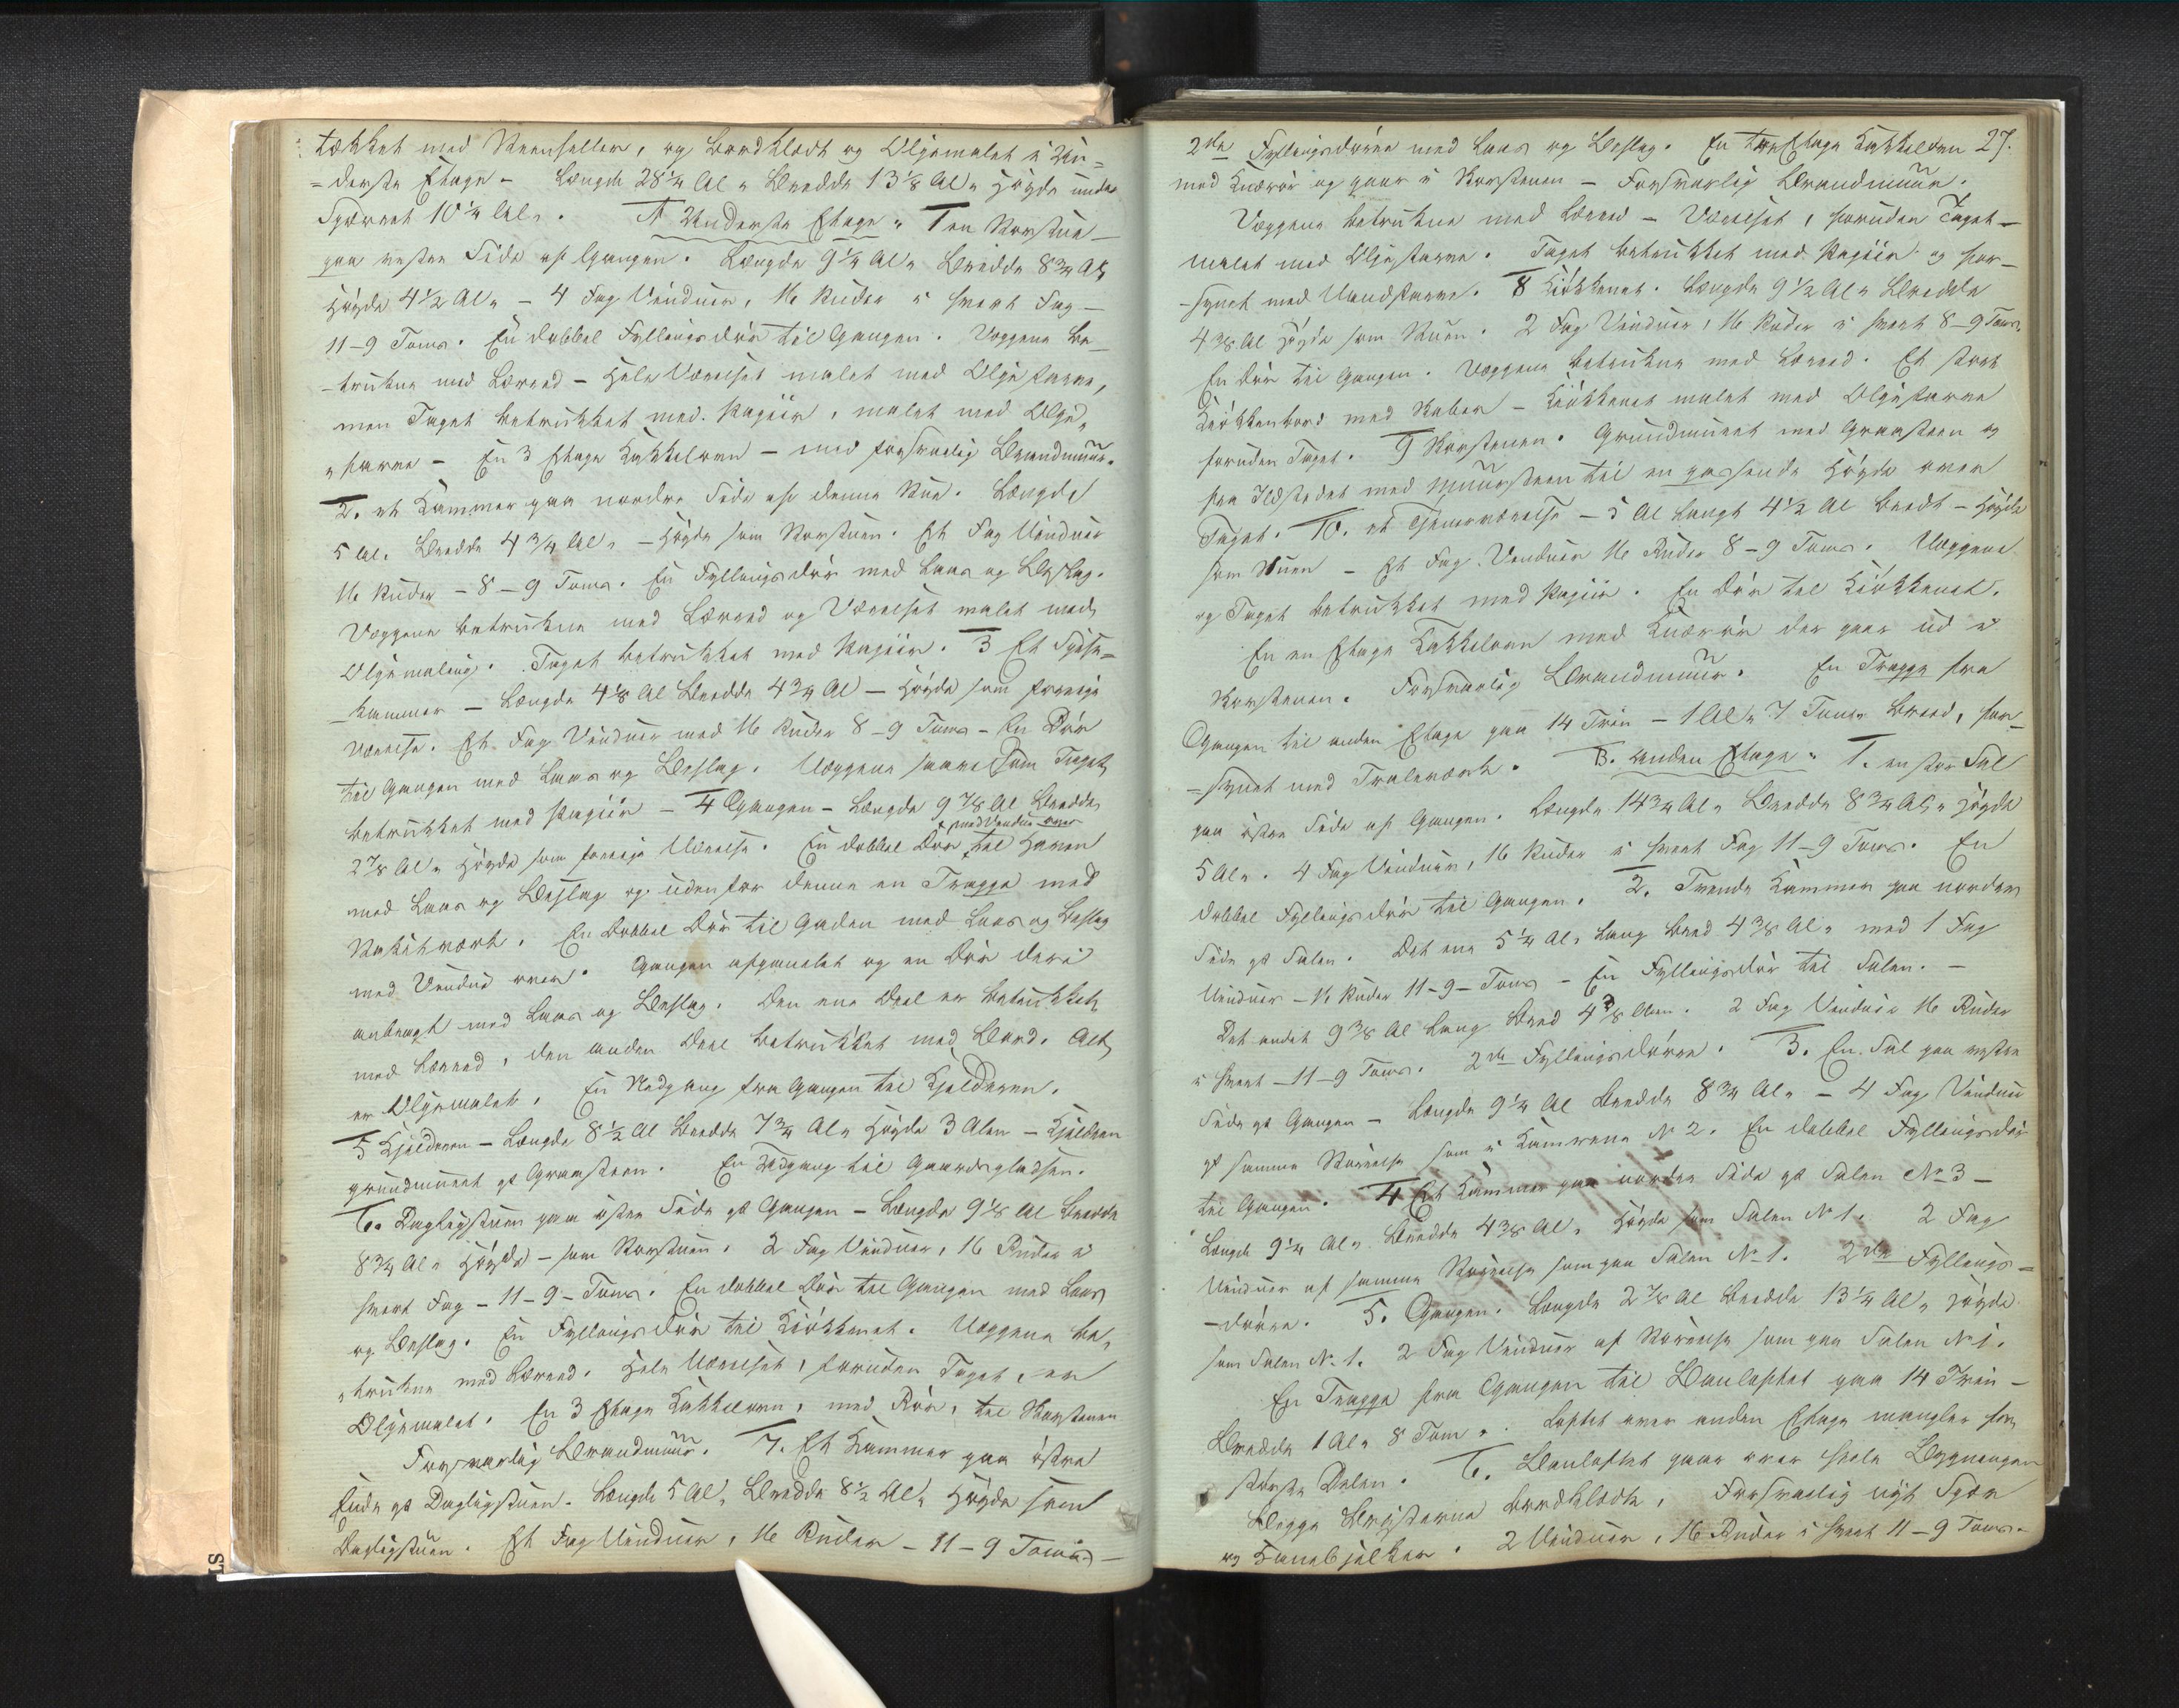 tækket med Steenheller, og bordklædt og Oljemalet i Un=
=derste Etage – Længde 28 1/4 Al „ Bredde 13 1/8 Al „ Høyde under
Spærret 10 1/4 Al „. A Underste Etage „ 1 en Storstue –
paa vestre Side af Gangen. Længde 9 1/4 Al „ Bredde 8 3/4 Al,
Høyde 4 1/2 Al „ – 4 Fag Vinduer, 16 Ruder i hvert Fag –
11–9 Toms. En dobbel Fyllingsdør til Gangen. Væggene be–
–trukne med Lærred – Hele Værelset malet med Olje farve,
men Taget betrukket med Papiir, malet med Olje„
„farve – En 3 Etage Kakkelovn – med forsvarlig Brandmuur.
2. et Kammer paa nordre Side af denne Stue. Længde
5 Al. Bredde 4 3/4 Al „ – Høyde som Storstuen. Et Fag Vinduer
16 Ruder – 8–9 Toms. En Fyllingsdør med Laas og Beslag.
Væggene betrukne med Lærred og Værelset malet med
Oljemaling. Taget betrukket med Papiir. 3 Et Spise=
–kammer – Længde 4 1/8 Al Bredde 4 3/4 Al – Høyde som forrige
Værelse. Et Fag Vinduer med 16 Ruder 8–9 Toms – En Dør
til Gangen med Laas og Beslag. Væggene saavel som Taget
betrukket med Papiir – 4 Gangen – Længde 9 7/8 Al Bredde
+ med Vindue over
2 7/8 Al „ Høyde som forrige Værelse. En dobbel Dør + til Haven
med Laas og Beslag og udenfor denne en Trappe med
Stakitværk. En Dobbel Dør til Gaden med Laas og Beslag
med Vindue over. Gangen afpanelet og en Dør deri
anbragt med Laas og Beslag. Den ene Deel er betrukket
med Lærred, den anden Deel betrukket med Bord. Alt
er Oljemalet. En Nedgang fra Gangen til Kjelderen.
5 Kjelderen – Længde 8 1/2 Al Bredde 7 3/4 Al „ Høyde 3 Alen – Kjelderen
grundmuret af Graasteen. En Udgang til Gaardspladsen.
6. Dagligstuen paa østre Side af Gangen – Længde 9 1/8 Al Bredde
8 3/4 Al „ Høyde – som Storstuen. 2 Fag Vinduer, 16 Ruder i
hvert Fag – 11–9– Toms. En dobbel Dør til Gangen med Laas
og Beslag. En Fyllingsdør til Kiøkkenet. Væggene be„
„trukne med Lærred. Hele Værelset, foruden Taget, er
Oljemalet. En 3 Etage Kakkelovn, med Rør, til Skorstenen
Forsvarlig Brandmuur. 7. Et Kammer paa østre
Ende af Dagligstuen. Længde 5 Al „ Bredde 8 1/2 Al „ Høyde som
Dagligstuen. Et Fag Vinduer, 16 Ruder – 11–9 Toms –
27.
2de Fyllingsdørre med Laas og Beslag. En to Etage Kakkelovn
med Knærør og gaar i Skorstenen – Forsvarlig Brandmuur.
Væggene betrukne med Lærred – Værelset, foruden Taget –
malet med Oljefarve. Taget betrukket med Papiir og for–
–synet med Vandfarve. 8 Kiøkkenet. Længde 9 1/2 Al „ Bredde
4 3/8 Al Høyde som Stuen. 2 Fag Vinduer, 16 Ruder i hvert 8–9 Toms.
En Dør til Gangen. Væggene betrukne med Lærred. Et stort
Kiøkkenbord med Skabe – Kiøkkenet malet med Oljefarve
foruden Taget. 9 Skorstenen. Grundmuret med Graasteen og
fra Ildstedet med Muursteen til en passende Høyde over
Taget. 10. et Tjenerværelse – 5 Al langt 4 1/2 Al bredt – Høyde
som Stuen – Et Fag Vinduer 16 Ruder 8–9 Toms. Væggene
og Taget betrukket med Papiir. En Dør til Kiøkkenet.
En en Etage Kakkelovn med Knærør der gaar ud i
Skorstenen. Forsvarlig Brandmuur. En Trappe fra
Gangen til anden Etage paa 14 Trin – 1 Al „ 7 Toms bred, for–
=synet med Tralleværk. B. Anden Etage „ 1. en stor Sal
paa østre Side af Gangen. Længde 14 3/4 Al „ Bredde 8 3/4 Al „ Høyde
5 Al „. 4 Fag Vinduer, 16 Ruder i hvert Fag 11–9 Toms. En
dobbel Fyllingsdør til Gangen. 2. Tvende Kammer paa nordre
Side af Salen. Det ene 5 1/4 Al „ lang bred 4 3/8 Al „ med 1 Fag
Vinduer – 16 Ruder 11–9– Toms – En Fyllingsdør til Salen. –
Det andet 9 3/8 Al lang bred 4 3/8 Alen. 2 Fag Vinduer 16 Ruder
i hvert – 11–9 Toms. 2de Fyllingsdørre. 3. En Sal paa vestre
Side af Gangen – Længde 9 1/4 Al Bredde 8 3/4 Al „ – 4 Fag Vinduer
af samme Størrelse som i Kamrene No 2. En dobbel Fyllingsdør
til Gangen. 4 Et Kammer paa nordre Side af Salen No 3 –
Længde 9 1/4 Al „ Bredde 4 3/8 Al „ Høyde som Salen No 1. 2 Fag
Vinduer af samme Størrelse som paa Salen No 1. 2de Fyllings=
–dørre. 5. Gangen. Længde 2 7/8 Al Bredde 13 1/4 Al „ Høyde
som Salen No 1. 2 Fag Vinduer af Størrelse som paa Salen No 1.
En Trappe fra Gangen til Bauloftet paa 14 Trin –
Bredde 1 Al „ 8 Tom „. Loftet over anden Etage mangler for
største Delen. 6. Bauloftet gaar over hele Bygningen
Begge Brysterne bordklædte. Forsvarlig nyt Spær
og Hanebjelker. 2 Vinduer, 16 Ruder i hvert 11–9 Toms.